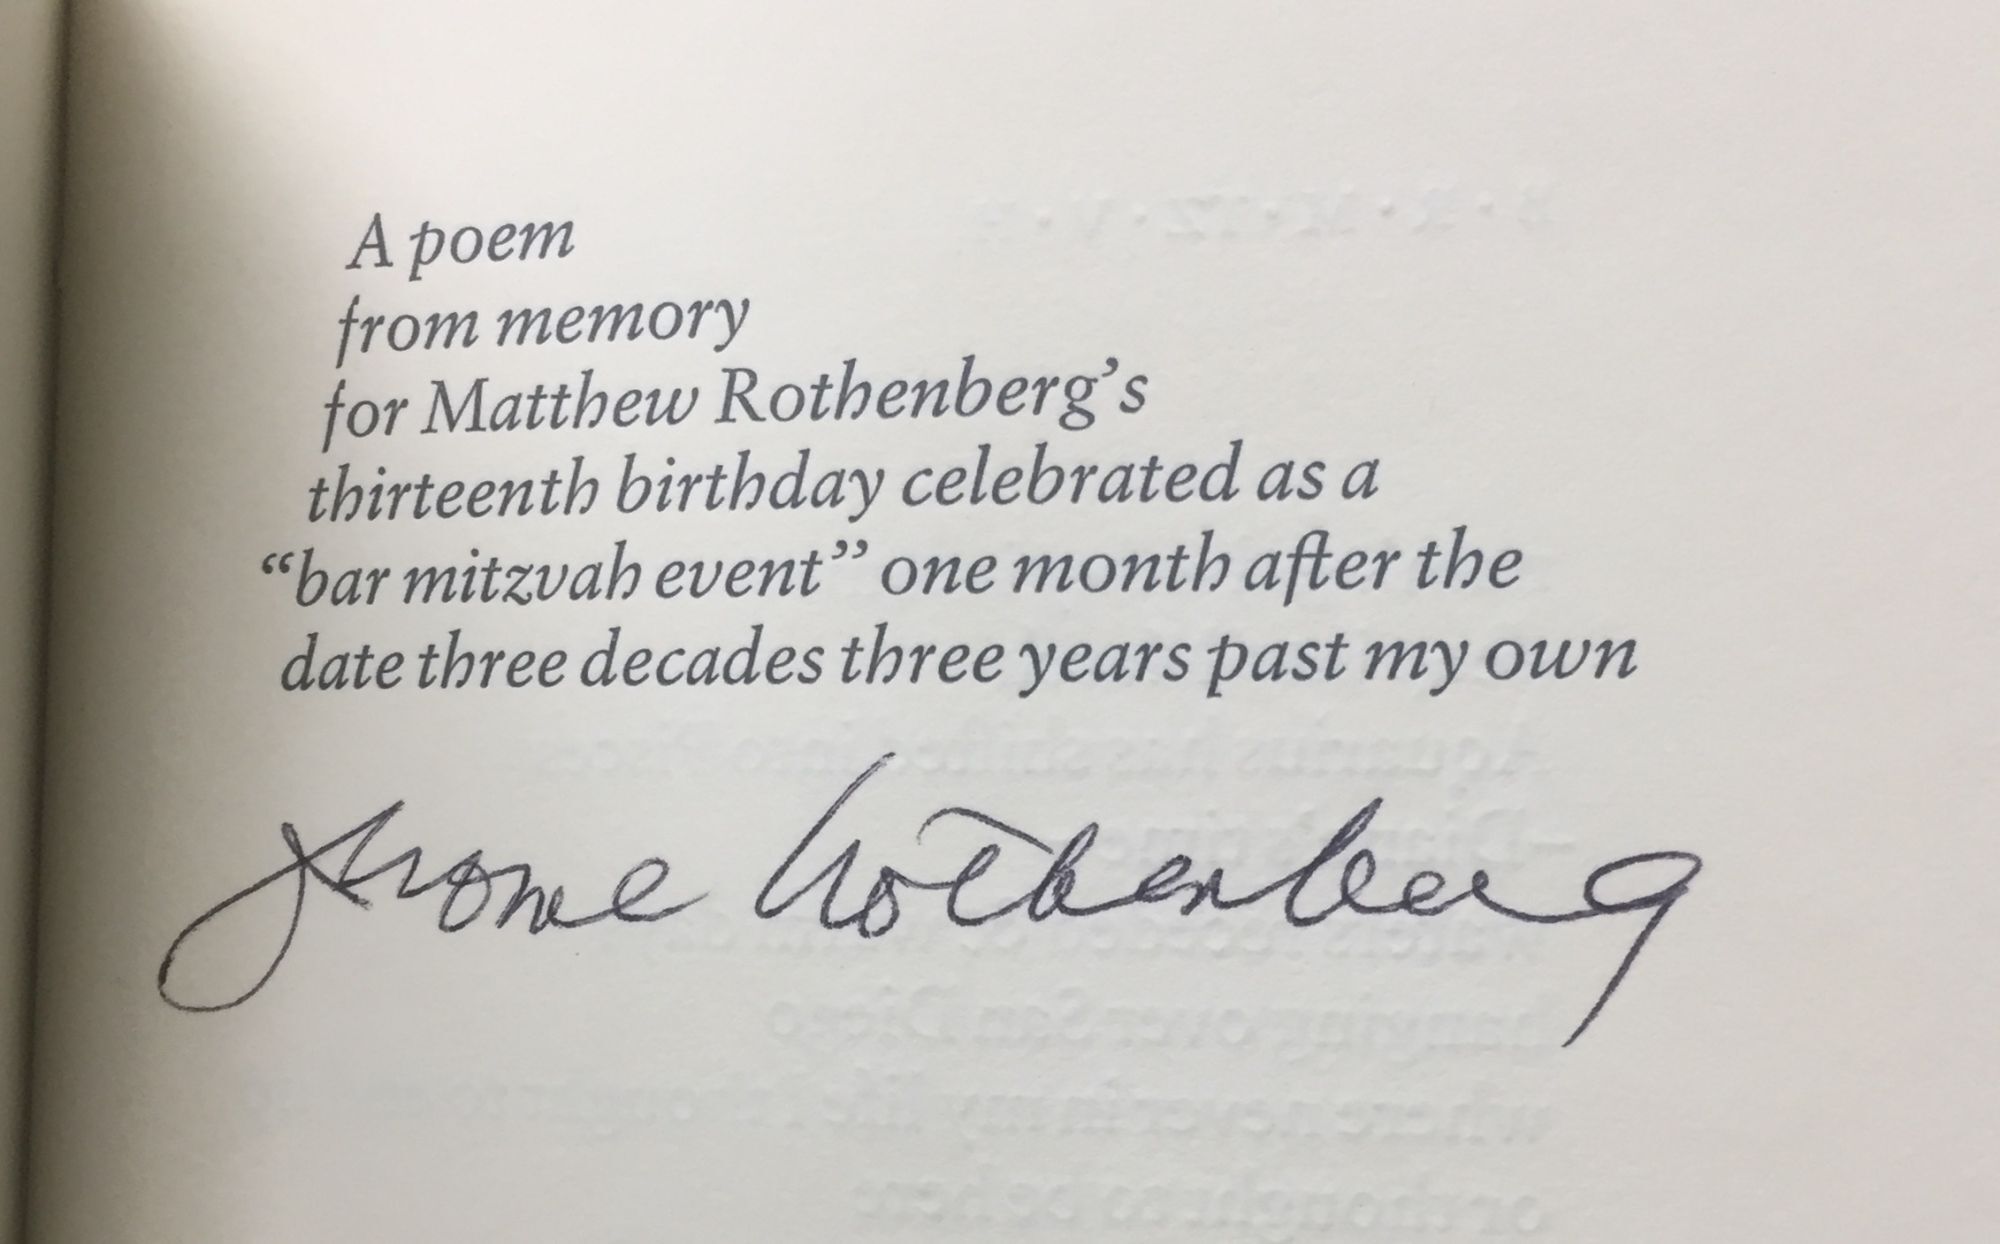 A poem
from memory
for Matthew Rothenberg's
thirteenth birthday celebrated as a
“bar mitzvah event” one month after the
date three decades three years past my own
Jerome Rothenberg